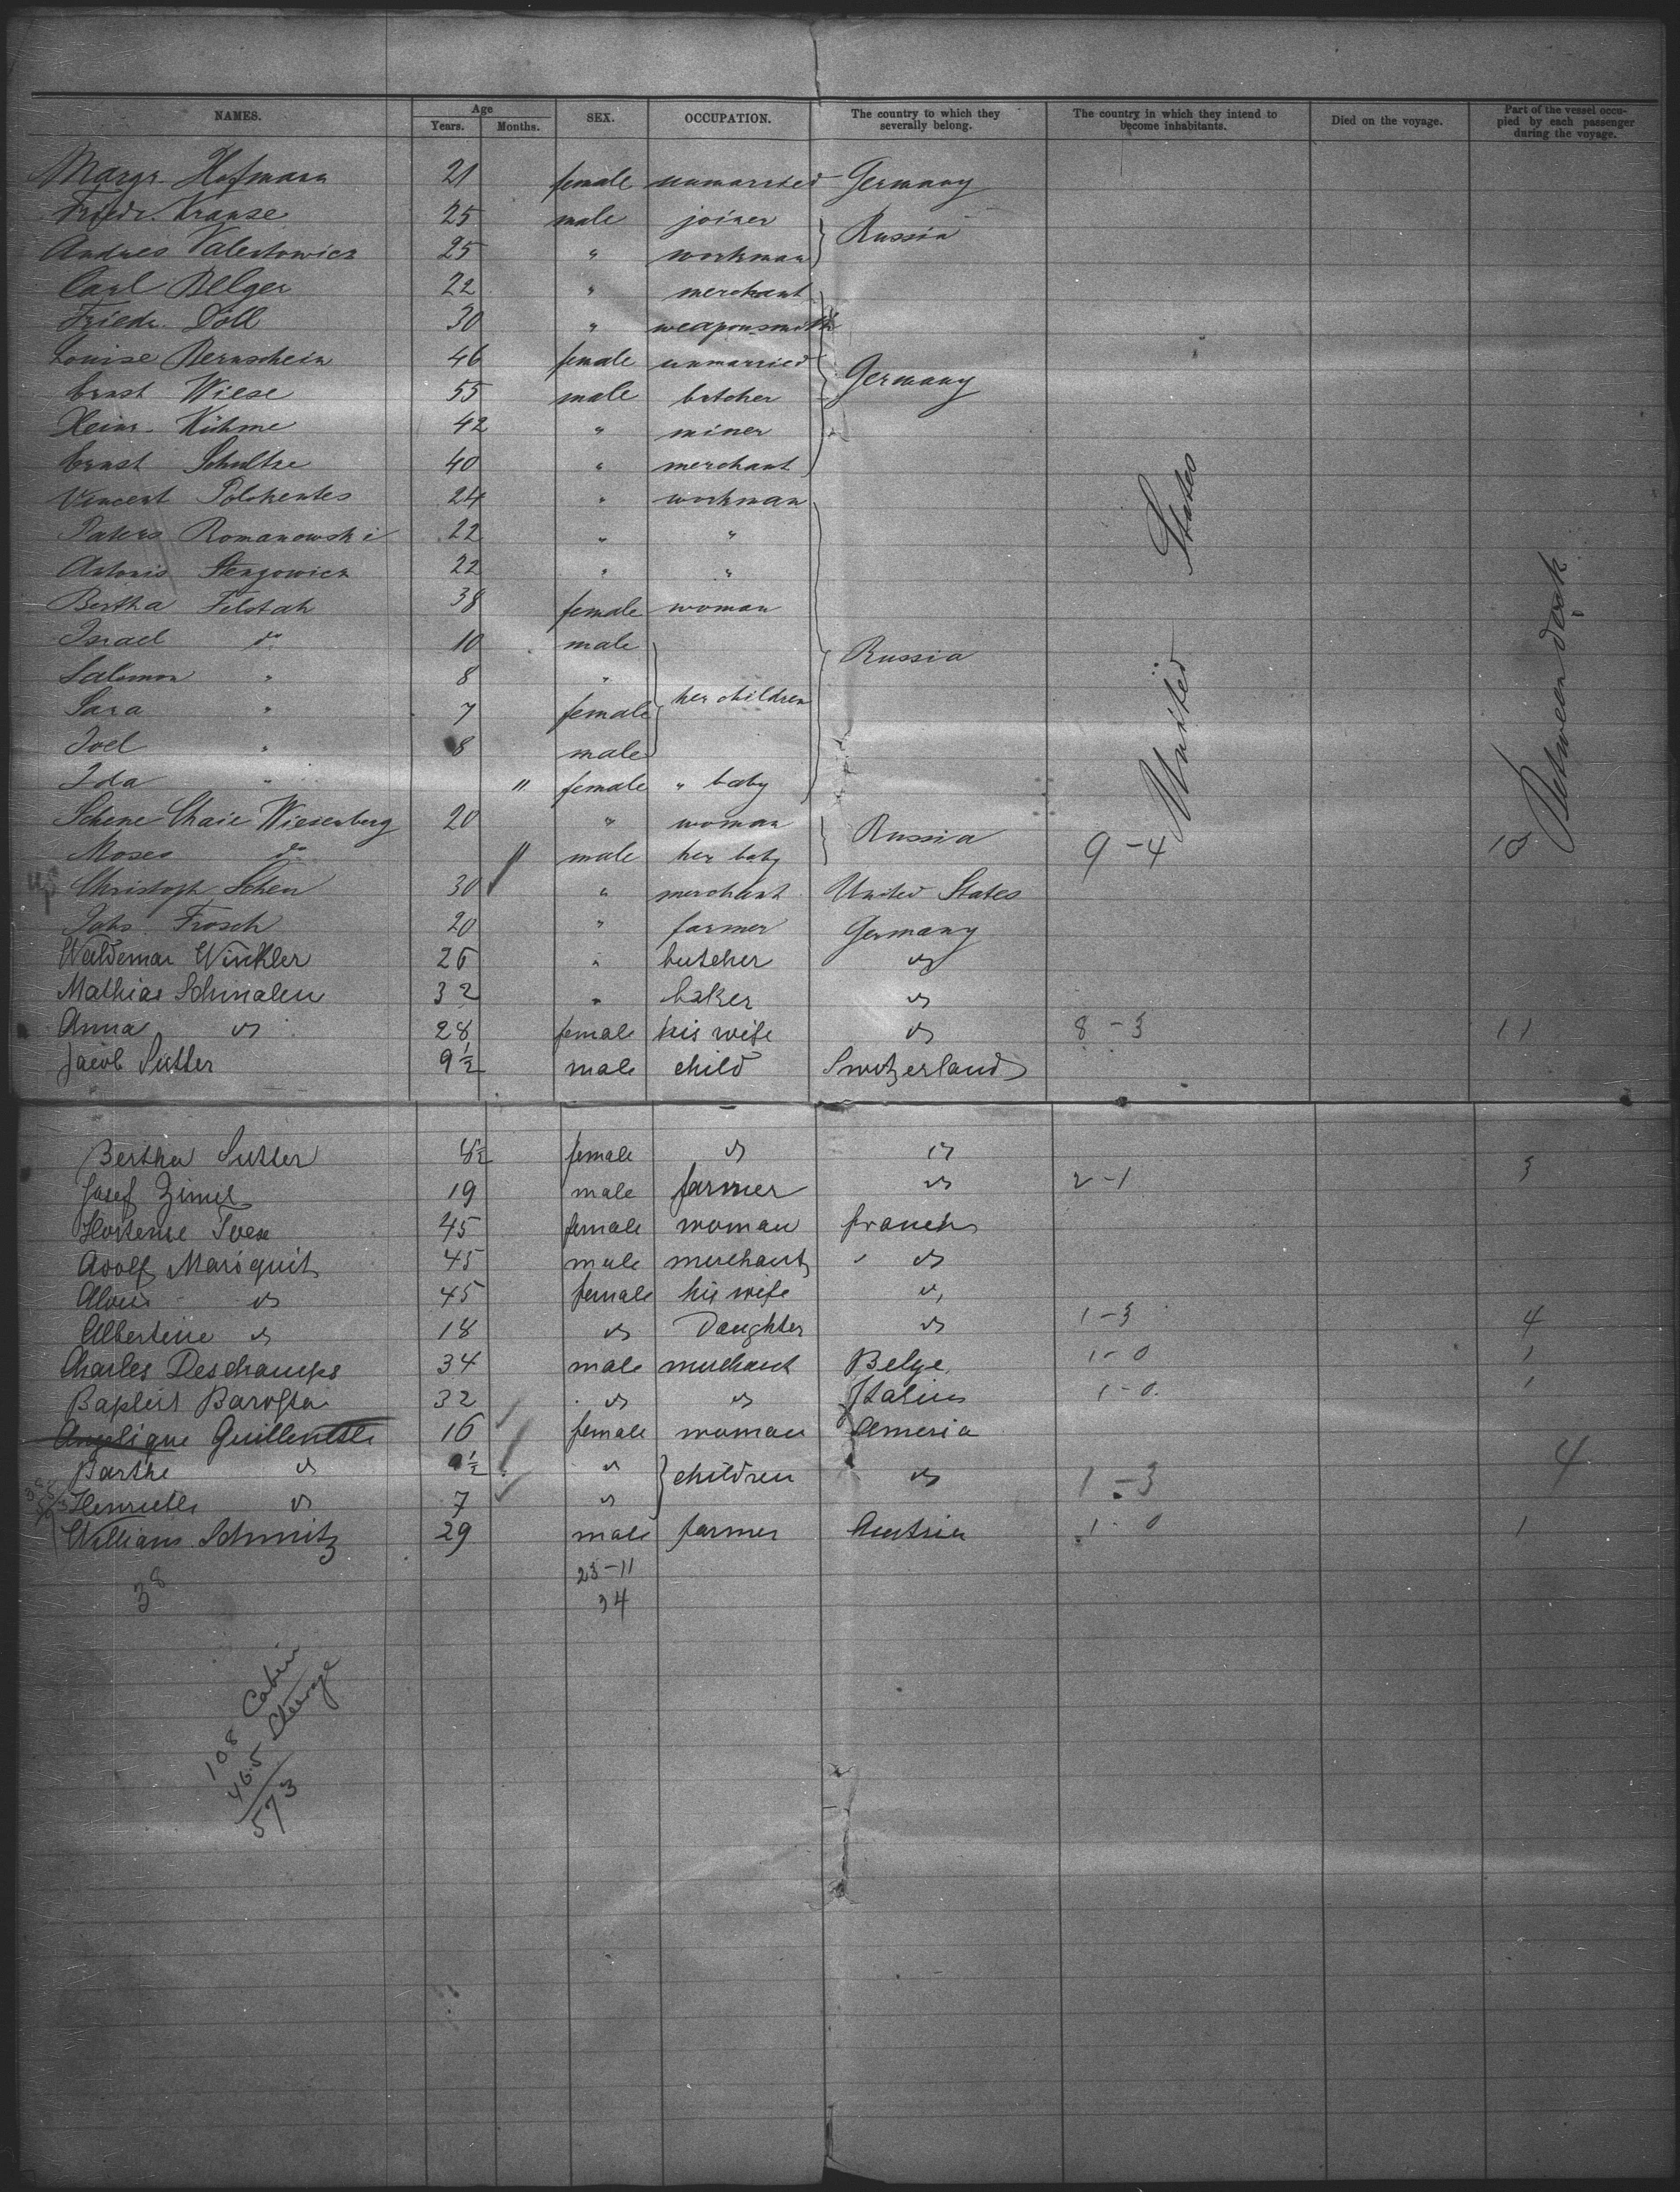 NAMES. Age Years. Months. SEX. OCCUPATION. The country to which they severally belong. The country in which they intend to become inhabitants. Died on the voyage. Part of the vessel occupied by each passenger during the voyage.
Margr. Hofmann 21 female unmarried Germany
Friedr. Krause 25 male joiner
Russia
Andres 25 " workman
Carl 22 " merchant
Friedr. Döll 30 " weaponsmith
Louise Bernschein 46 female unmarried
Germany
Ernst Wiese 55 male butcher
Heinr. Kühme 42 " miner
Ernst Schultze 40 " merchant
Vincent 24 " workman
Romanowski 22 " "
Antonis 22 " "
Bertha Felstah 38 female woman
Israel do 10 male
Russia
Salomon " 8 "
her children
Sara " 7 female
Joel " 8 male
Ida " 11 female " baby
United States
Between deck
Schene Chaie Wiesenberg 20 " woman
Russia
Moses do 11 male her baby 9-4 13
Christoph Schen 30 " merchant United States
Johs Frosch 20 " farmer Germany
Waldemar Winkler 26 " butcher do
Mathias Schmalen 32 " baker do
Anna do 28 female his wife do 8-3 11
Jacob Sutter 9½ male child Switzerland
Bertha Sutter 8½ female do do 3
Josef 19 male farmer do 2-1
Hortense 45 female woman french
Adolf Marsquit 45 male merchant " do
do 45 female his wife do
Albertine do 18 do Daughter do 1-3 4
Charles Deschamps 34 male merchant Belge 1-0 1
Baptist 32 do do 1-0 1
Angelique 16 female woman Ameria
Barthe do ½ do
children do 1-3 4
Henriette do 7 do
William Schmitz 29 male farmer Austria 1-0 1
38
23-11
34
108 Cabin
465 Steerage
573